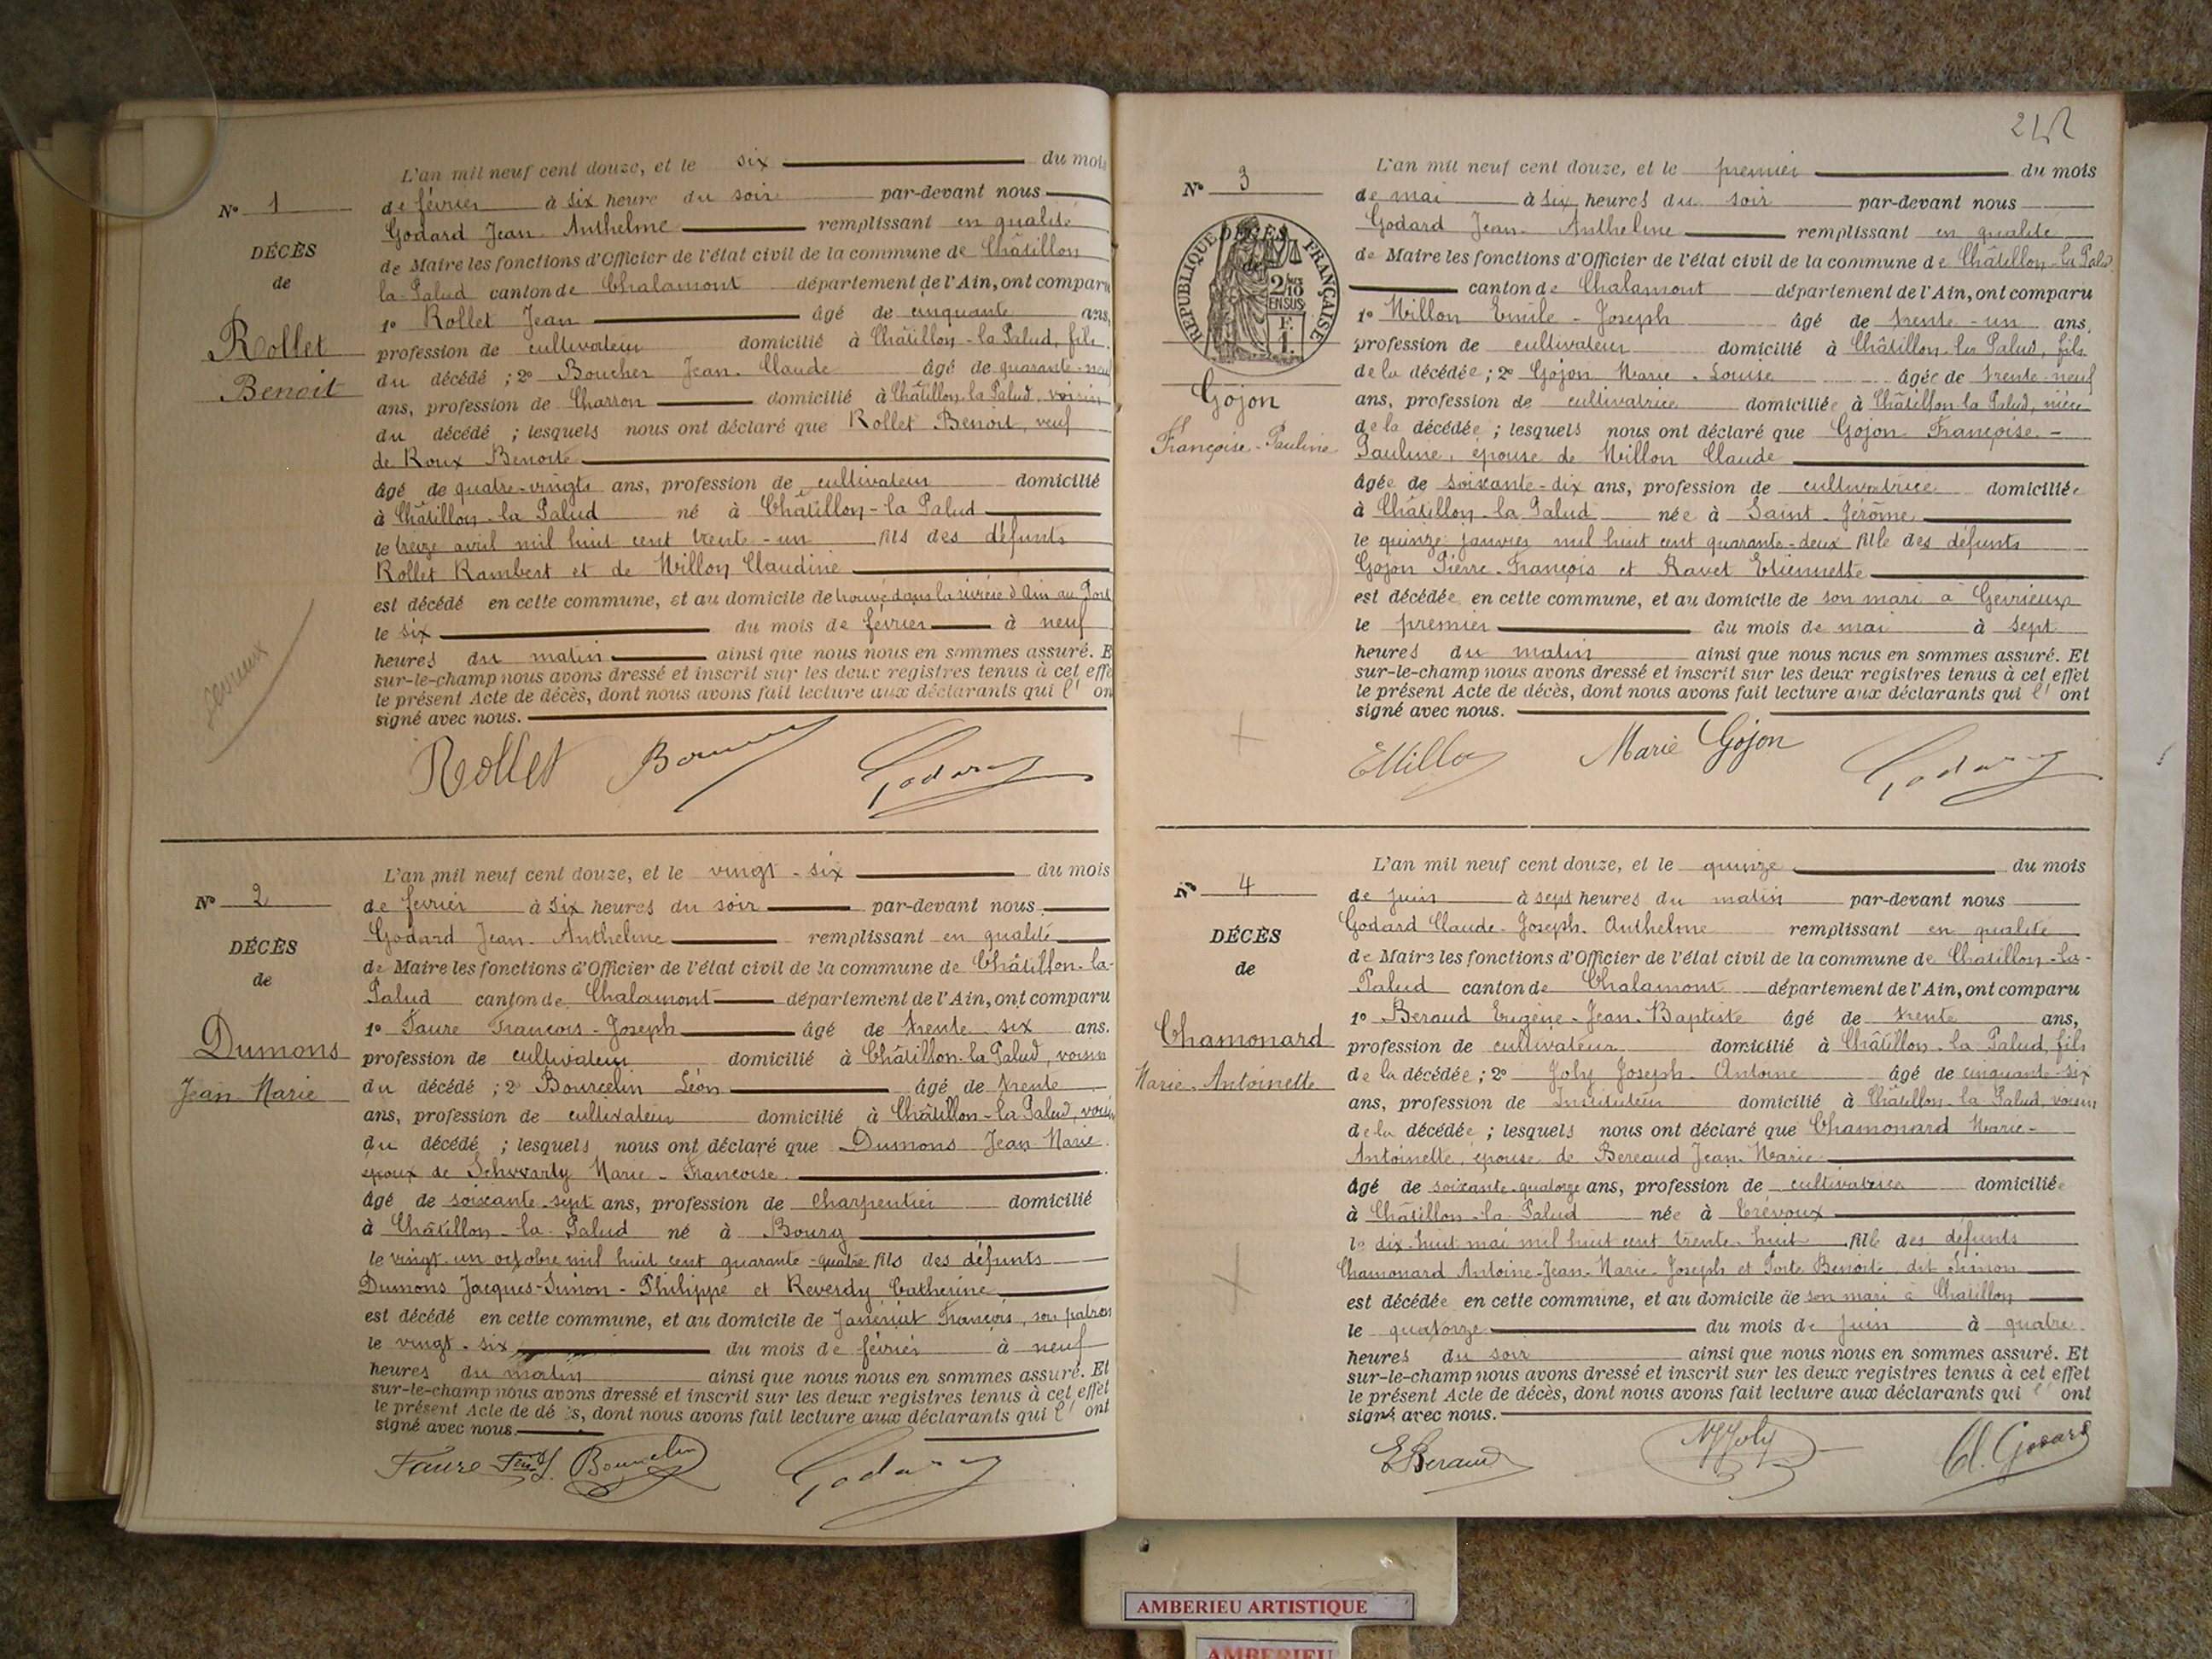 L'an mil neuf cent douze, et le six du mois
N° 1
de février à six heure du soir par-devant nous
Godard Jean-Anthelme remplissant en qualité
DÉCÈS
de Maire les fonctions d'Officier de l'état civil de la commune de Châtillon
de
la-Palud canton de Chalamont département de l'Ain, ont comparu
1° Rollet Jean âgé de cinquante ans,
Rollet
profession de cultivateur domicilié à Châtillon-la Palud, fils
Benoit
du décédé ; 2° Boucher Jean-Claude âgé de quarante-neuf
ans, profession de Charron domicilié à Châtillon-la Palud, voisin
du décédé ; lesquels nous ont déclaré que Rollet Benoit, veuf
de Roux Benoite
âgé de quatre-vingts ans, profession de cultivateur domicilié
à Châtillon-la Palud né à Châtillon-la Palud
le treize avril mil huit cent trente-un fils des défunts
Rollet Rambert et de Millon Claudine
est décédé en cette commune, et au domicile de trouvé dans la rivière d'Ain au Port
le six du mois de février à neuf
heures du matin ainsi que nous nous en sommes assuré. E
sur-le-champ nous avons dressé et inscrit sur les deux registres tenus à cet effe
le présent Acte de décès, dont nous avons fait lecture aux déclarants qui l' on
signé avec nous.
Rollet Godard
L'an mil neuf cent douze, et le vingt-six du mois
N° 2
de février à six heures du soir par-devant nous
Godard Jean-Anthelme remplissant en qualité
DÉCÈS
de Maire les fonctions d'Officier de l'état civil de la commune de Châtillon-la-
de
Palud canton de Chalamont département de l'Ain, ont comparu
1° Faure François-Joseph âgé de trente six ans.
Dumons
profession de cultivateur domicilié à Châtillon-la Palud, voisin
Jean-Marie
du décédé ; 2° Bourcelin Léon âgé de trente
ans, profession de cultivateur domicilié à Châtillon-la Palud, voisin
du décédé ; lesquels nous ont déclaré que Dumons Jean-Marie
époux de Schwarty Marie-Françoise
âgé de soixante-sept ans, profession de charpentier domicilié
à Châtillon-la-Palud né à Bourg
le vingt-un octobre mil huit cent quarante-quatre fils des défunts
Dumons Jacques-Simon-Philippe et Reverdy Catherine
est décédé en cette commune, et au domicile de Janériat François, son patron
le vingt-six du mois de février à neuf
heures du matin ainsi que nous nous en sommes assuré. Et
sur-le-champ nous avons dressé et inscrit sur les deux registres tenus à cet effet
le présent Acte de dé s, dont nous avons fait lecture aux déclarants qui l' ont
signé avec nous.
Faure Bourcelin Godard
L'an mil neuf cent douze, et le premier du mois
N° 3
de mai à six heures du soir par-devant nous
Godard Jean-Anthelme remplissant en qualité
DÉCÈS
de
RÉPUBLIQUE FRANÇAISE
2/10 EN SUS
F. 1.
de Maire les fonctions d'Officier de l'état civil de la commune de Châtillon-la Palud
canton de Chalamont département de l'Ain, ont comparu
1° Millon Emile-Joseph âgé de trente-un ans,
profession de cultivateur domicilié à Châtillon-la Palud, fils
de la décédée ; 2° Gojon Marie-Louise âgée de trente-neuf
Gojon
ans, profession de cultivatrice domiciliée à Châtillon-la Palud, nièce
Françoise-Pauline
de la décédée ; lesquels nous ont déclaré que Gojon Françoise-
Pauline, épouse de Millon Claude
âgée de soixante-dix ans, profession de cultivatrice domiciliée
à Châtillon-la Palud née à Saint-Jérôme
le quinze janvier mil huit cent quarante-deux fille des défunts
Gojon Pierre-François et Ravet Etiennette
est décédée en cette commune, et au domicile de son mari à Gévrieux
le premier du mois de mai à sept
heures du matin ainsi que nous nous en sommes assuré. Et
sur-le-champ nous avons dressé et inscrit sur les deux registres tenus à cet effet
le présent Acte de décès, dont nous avons fait lecture aux déclarants qui l' ont
signé avec nous.
EMillon Marie Gojon Godard
L'an mil neuf cent douze, et le quinze du mois
N° 4
de juin à sept heures du matin par-devant nous
Godard Claude-Joseph-Anthelme remplissant en qualité
DÉCÈS
de Maire les fonctions d'Officier de l'état civil de la commune de Chatillon-la-
de
Palud canton de Chalamont département de l'Ain, ont comparu
1° Beraud Eugène-Jean-Baptiste âgé de trente ans,
Chamonard
profession de cultivateur domicilié à Châtillon-la Palud, fils
Marie-Antoinette
de la décédée ; 2° Joly Joseph-Antoine âgé de cinquante-six
ans, profession de Instituteur domicilié à Châtillon-la Palud, voisin
de la décédée ; lesquels nous ont déclaré que Chamonard Marie-
Antoinette, épouse de Bereaud Jean-Marie
âgé de soixante-quatorze ans, profession de cultivatrice domiciliée
à Châtillon-la-Palud née à Trévoux
le dix-huit mai mil huit cent trente-huit fille des défunts
Chamonard Antoine-Jean-Marie-Joseph et Benoite dit Simon
est décédée en cette commune, et au domicile de son mari à Chatillon
le quatorze du mois de juin à quatre
heures du soir ainsi que nous nous en sommes assuré. Et
sur-le-champ nous avons dressé et inscrit sur les deux registres tenus à cet effet
le présent Acte de décès, dont nous avons fait lecture aux déclarants qui l' ont
signé avec nous.
EBeraud Joly Cl. Godard
AMBERIEU ARTISTIQUE
AMBERIEU